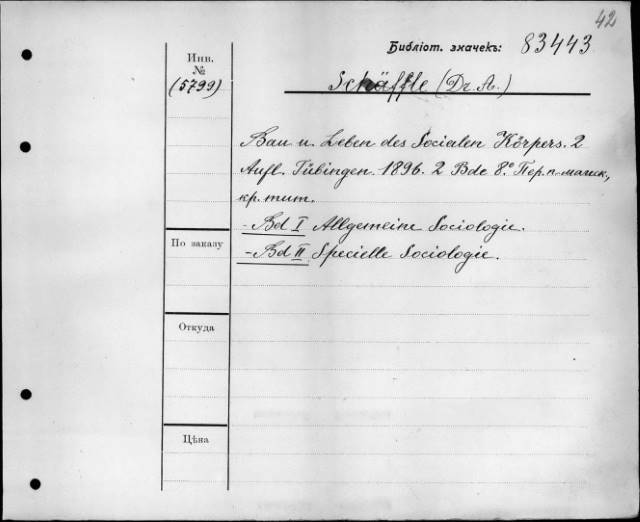 42
Библіот. значекъ: 83443
Инв.
№
(5799)
Schäffle (Dr. A.)
Bau u. Leben des Socialen Körpers. 2
Aufl. Tübingen. 1896. 2 Bde 8.° Пер. п.-магик,
кр. тит.
- Bd I Allgemeine Sociologie.
По заказу
- Bd II Specielle Sociologie.
Откуда
Цѣна